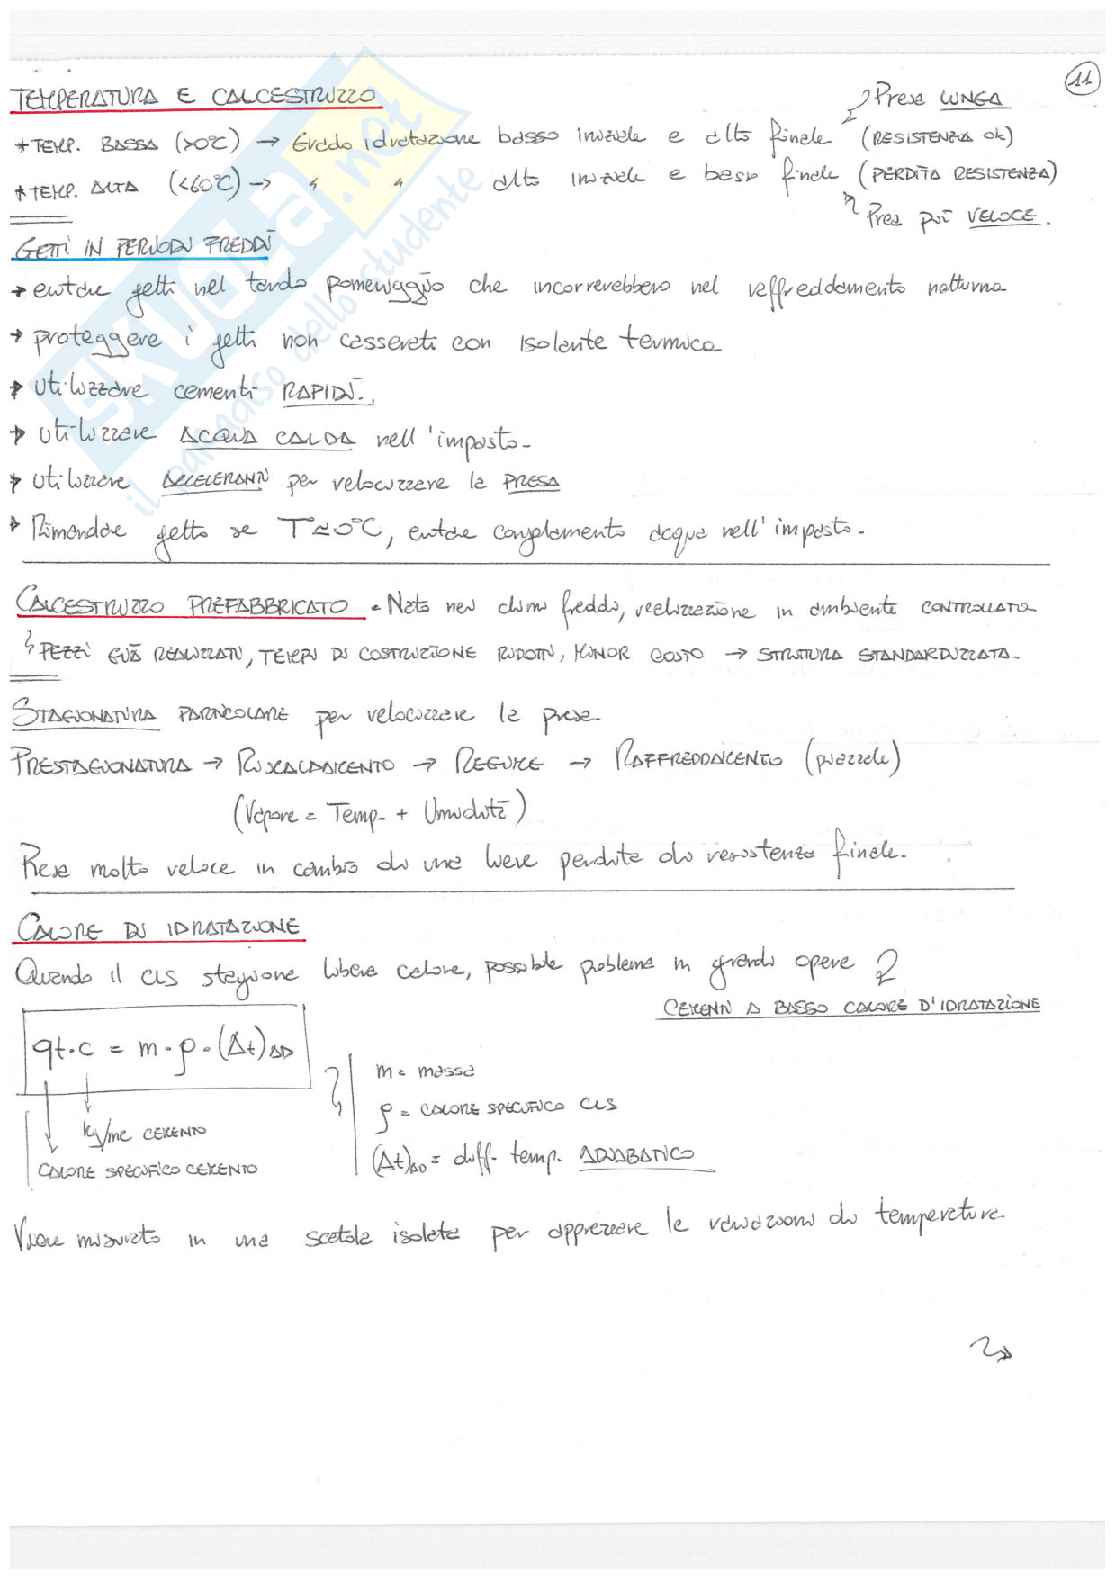 11
TEMPERATURA E CALCESTRUZZO
Presa LUNGA
* TEMP. BASSA (>0°C) → Grado idratazione basso iniziale e alto finale (RESISTENZA OK)
* TEMP. ALTA (<60°C) → " " alto iniziale e basso finale (PERDITA RESISTENZA)
Presa più VELOCE.
GETTI IN PERIODI FREDDI
→ evitare getti nel tardo pomeriggio che incorrerebbero nel raffreddamento notturno
→ proteggere i getti non casserati con isolante termico
→ utilizzare cementi RAPIDI.
→ utilizzare ACQUA CALDA nell'impasto.
→ utilizzare ACCELERANTI per velocizzare la PRESA
→ Rimandare getto se T≃0°C, evitare congelamento acqua nell'impasto.
CALCESTRUZZO PREFABBRICATO • Nato nei climi freddi, realizzazione in ambiente CONTROLLATO
↳ PEZZI GIÀ REALIZZATI, TEMPI DI COSTRUZIONE RIDOTTI, MINOR COSTO → STRUTTURA STANDARDIZZATA.
STAGIONATURA PARTICOLARE per velocizzare la presa
PRESTAGIONATURA → RISCALDAMENTO → REGIME → RAFFREDDAMENTO (piazzale)
(Vapore = Temp. + Umidità)
Presa molto veloce in cambio di una lieve perdita di resistenza finale.
CALORE DI IDRATAZIONE
Quando il CLS stagiona libera calore, possibile problema in grandi opere
CEMENTI A BASSO CALORE D'IDRATAZIONE
qt·c = m·ρ·(Δt)AD
m = massa
ρ = CALORE SPECIFICO CLS
kg/mc CEMENTO
CALORE SPECIFICO CEMENTO
(Δt)AD = diff. temp. ADIABATICO
Viene misurato in una scatola isolata per apprezzare le variazioni di temperatura
skuola.not
il paradiso dello studente